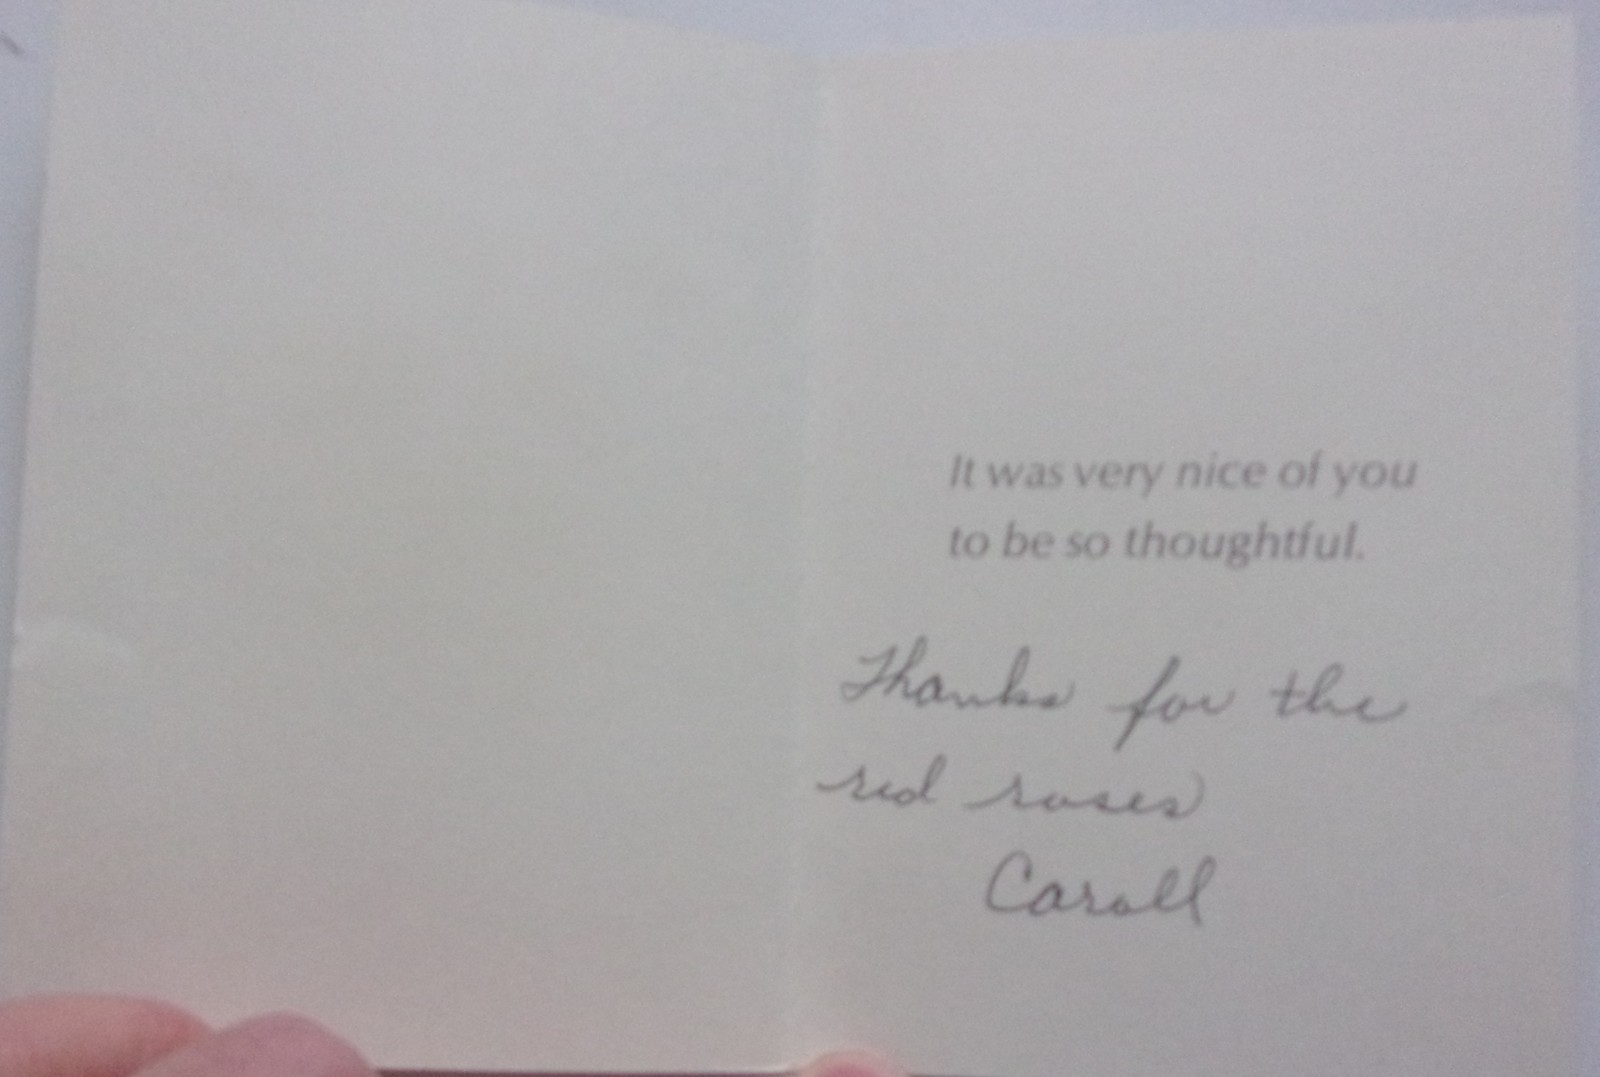 It was very nice of you
to be so thoughtful.
Thanks for the
red roses
Caroll